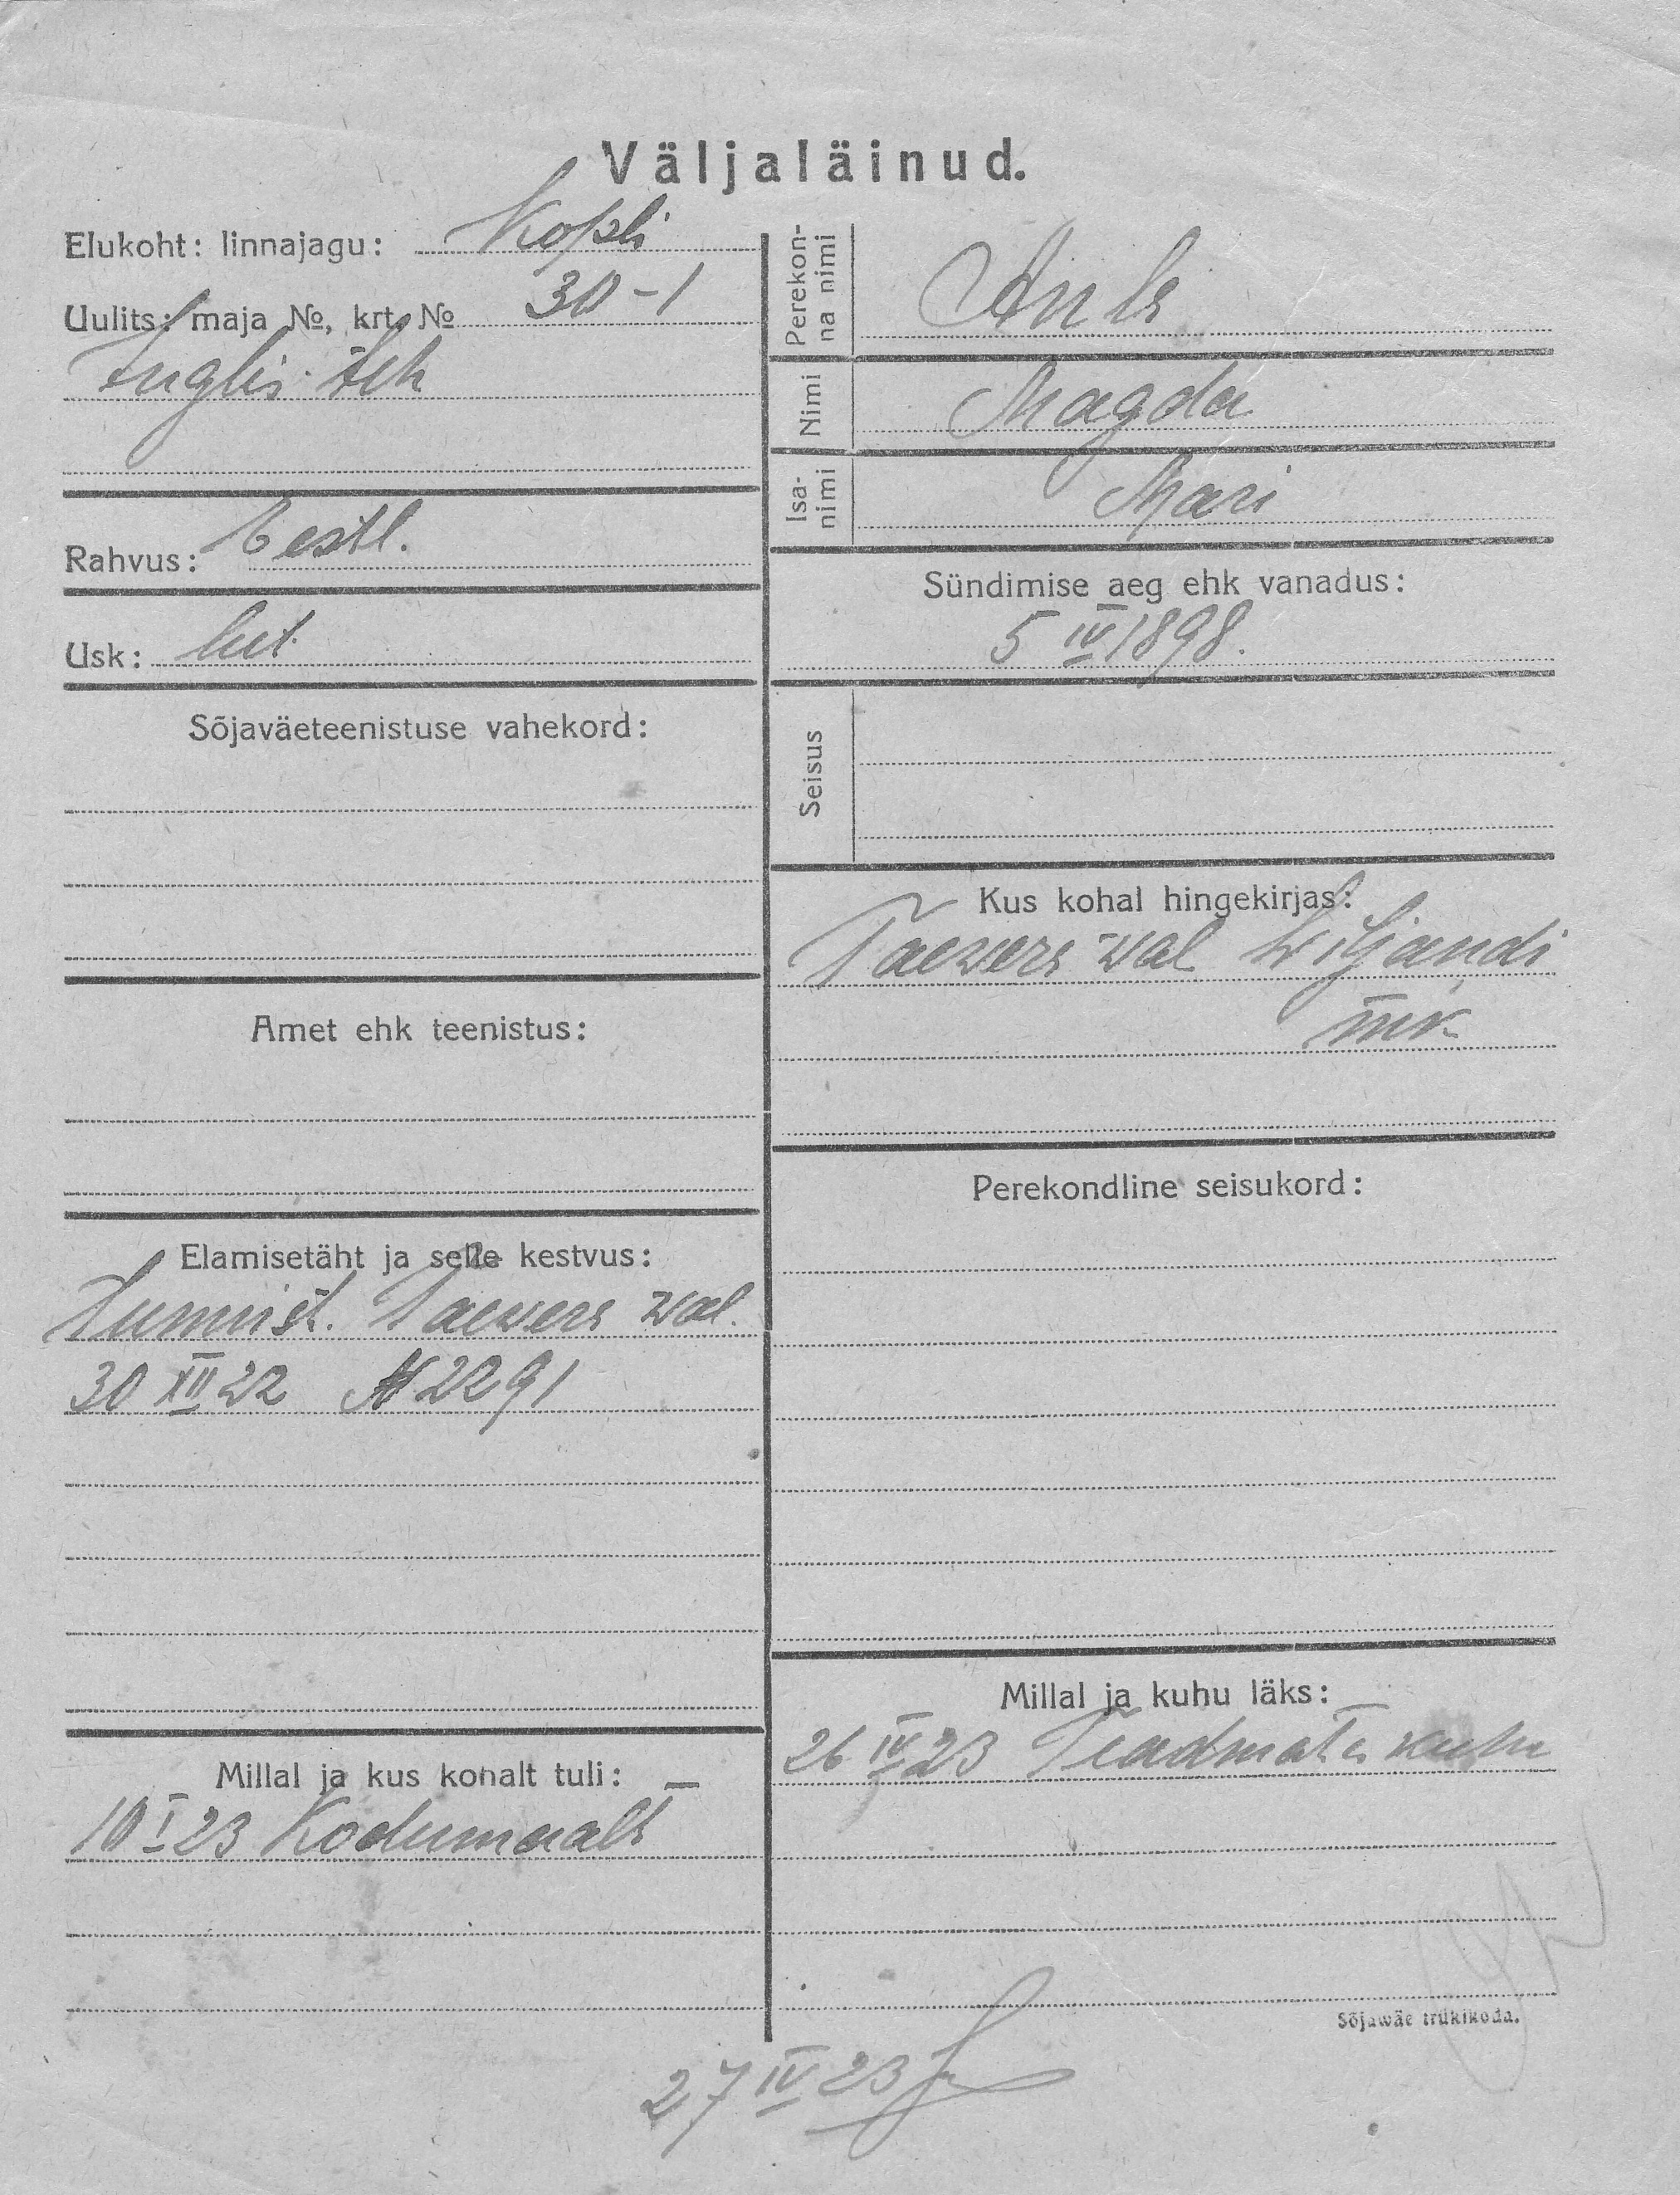 Väljaläinud.
Elukoht: linnajagu: Kopli
Uulits: maja №, krt. № 30-1
Inglis. teh
Rahvus: Eestl.
Usk: lut.
Sõjaväeteenistuse vahekord:
Amet ehk teenistus:
Elamisetäht ja selle kestvus:
Tunnist. Taewere wal.
30 XII 22 № 2291
Millal ja kus kohalt tuli:
10 I 23 Kodumaalt
Perekon-
na nimi
Nimi Magda
Isa-
nimi Mari
Sündimise aeg ehk vanadus:
5 IV 1898.
Seisus
Kus kohal hingekirjas:
Taewere wal Wiljandi
mk.
Perekondline seisukord:
Millal ja kuhu läks:
26 IV 23 Teadmata kuhu
Sõjawäe trükikoda.
27 IV 23